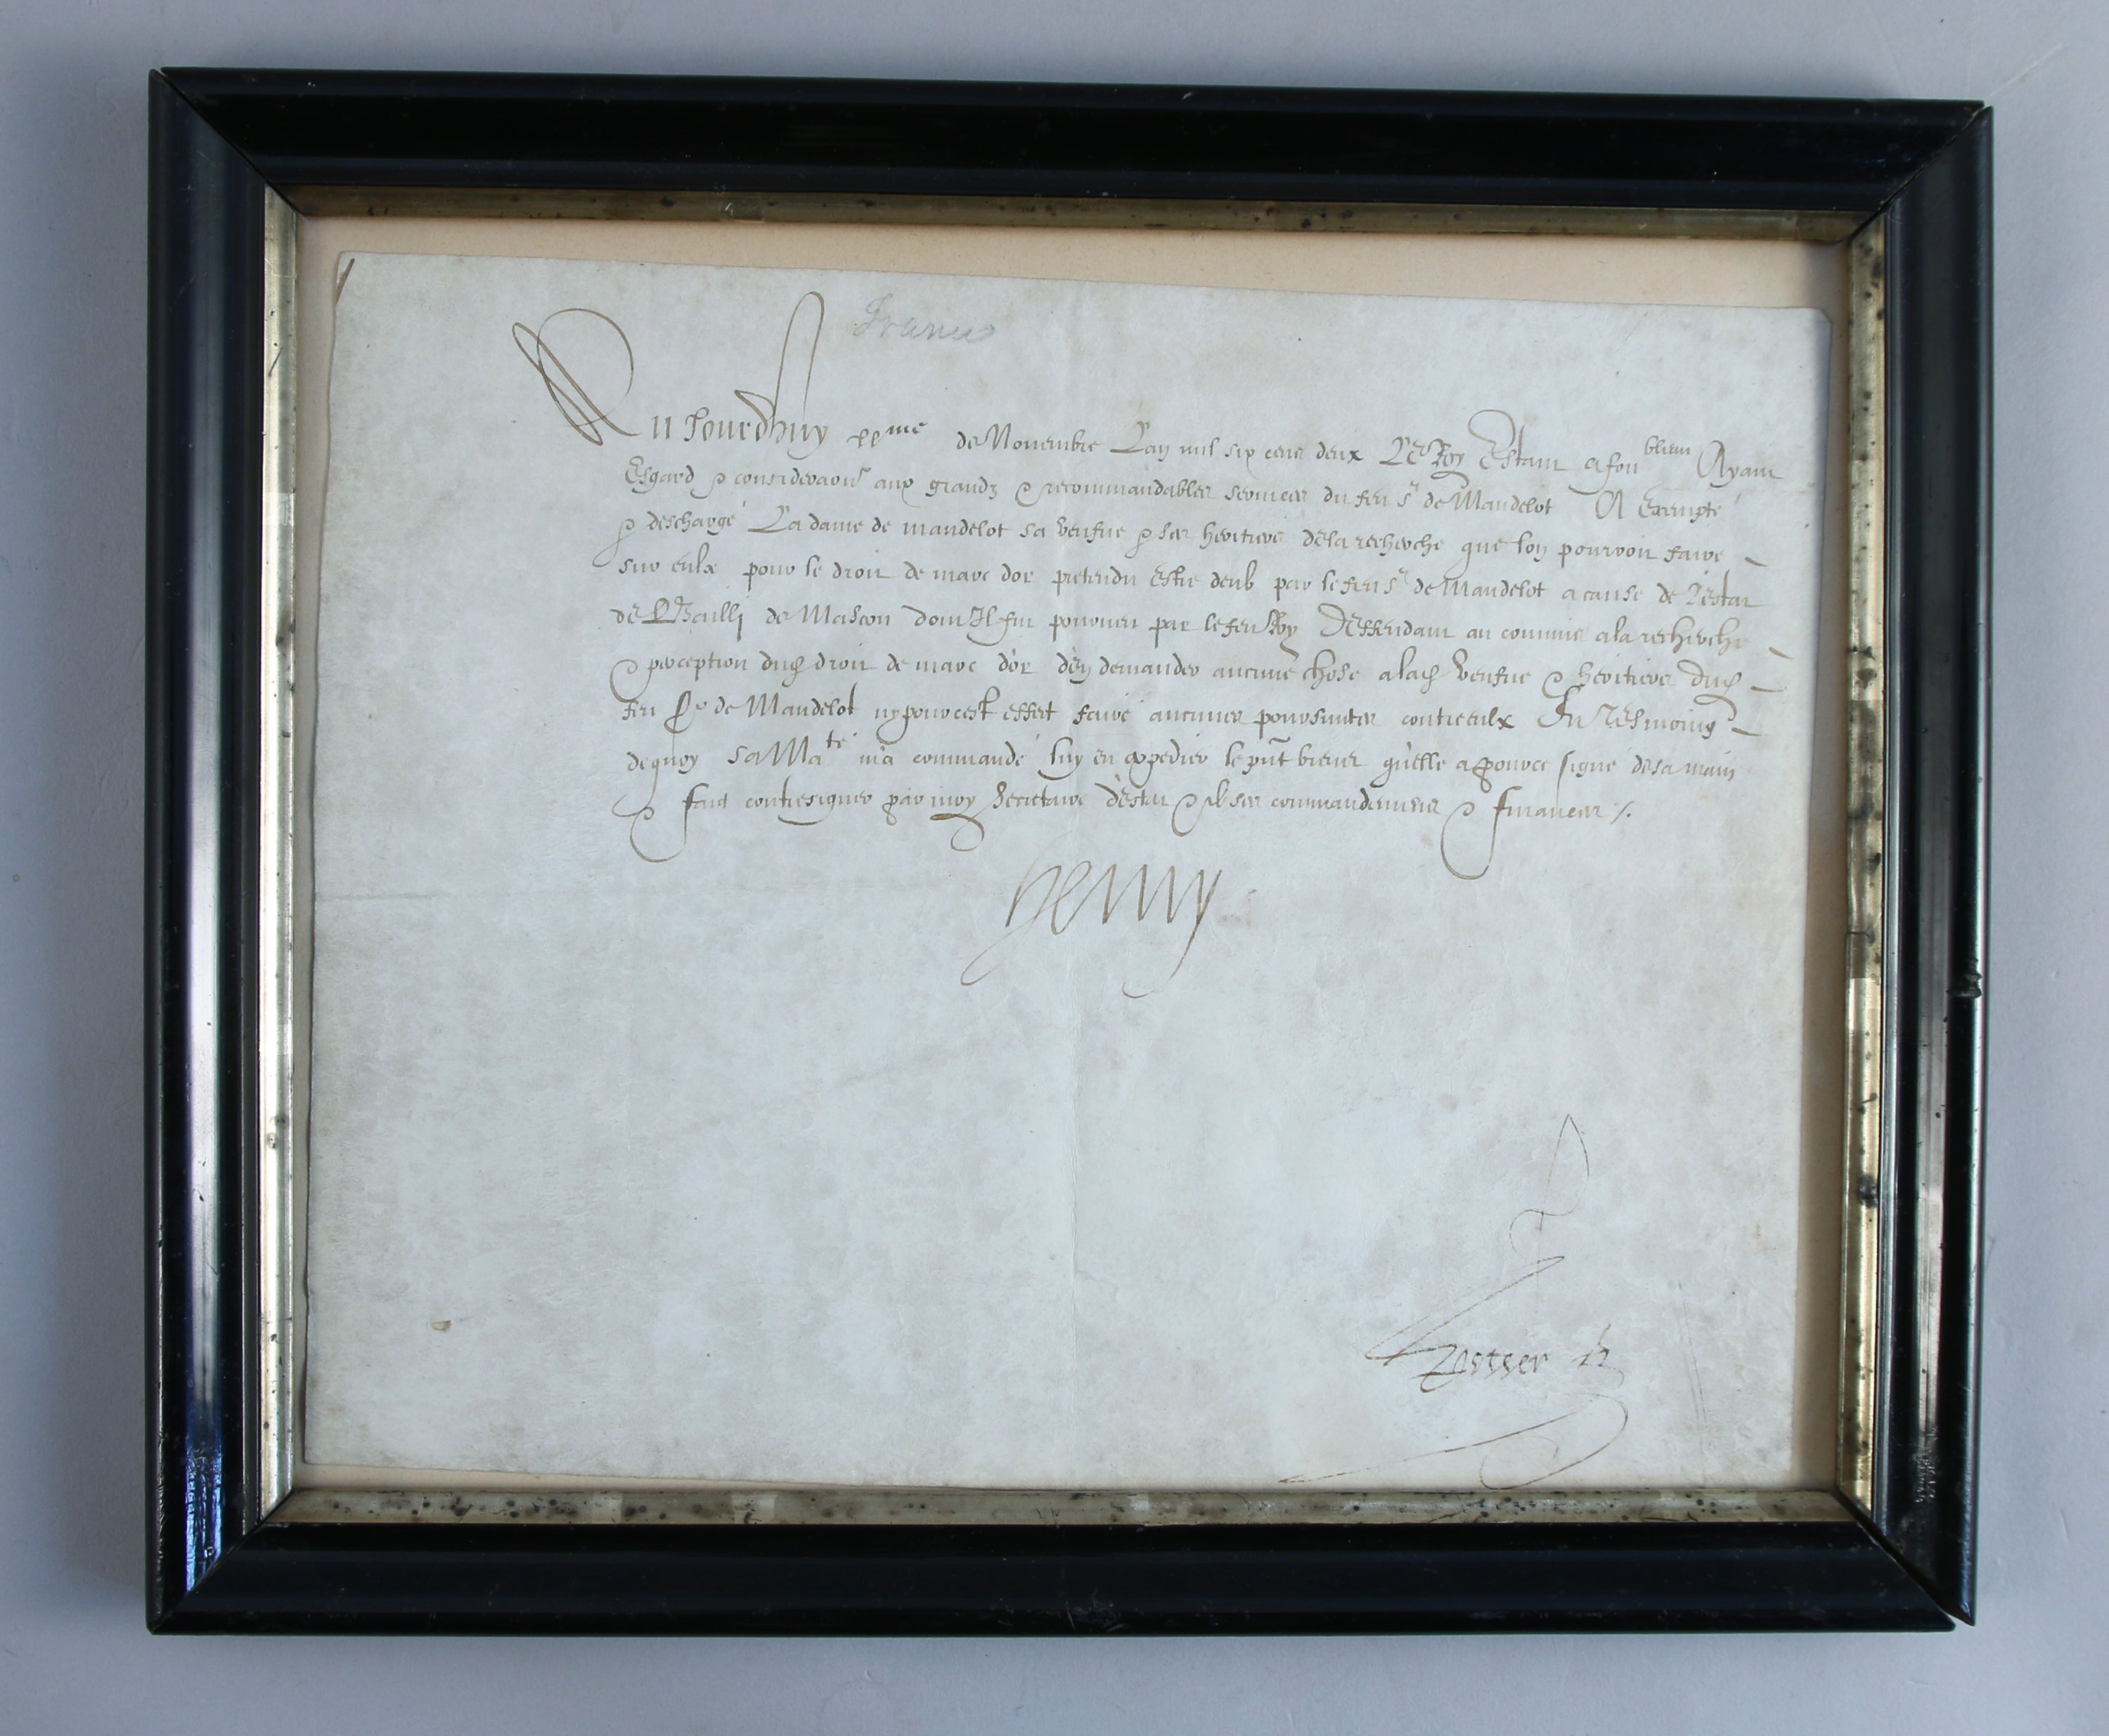 France
Aujourdhuy xxme de Novembre Lan mil six cens deux Le Roy Estant a fon bleau Ayant
Esgard & consideraon aux grandz & recommandables services du feu Sr de Mandelot A Exempté
& deschargé La dame de mandelot sa veufve & ses heritiers de la recherche que lon pourroit faire
sur eulx pour le droit de marc dor pretendu Estre deub par le feu Sr de Mandelot a cause de Lestat
de Bailli de Mascon dont Il fut pourveu par le feu Roy Deffendant au commis a la recherche
& perception dud droit de marc d'or d'en demander aucune chose a lad veufve & heritiers dud
feu Sr de Mandelot ny pour cest effect faire aucunes poursuittes contre eulx En Tesmoing
de quoy sa Mate m'a commandé luy en expedier le pnt brevet qu'elle a pour ce signé de sa main
& faict contresigner par moy Secretaire d'estat & de ses commandemens & finances /.
Henry